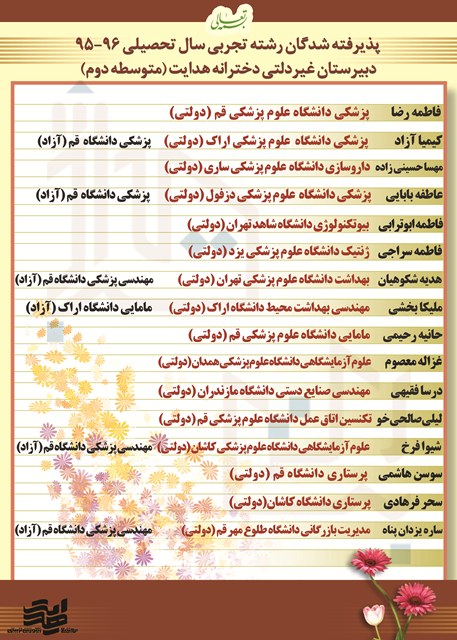 بسمه تعالی
پذیرفته شدگان رشته تجربی سال تحصیلی ۹۶-۹۵
دبیرستان غیردلتی دخترانه هدایت (متوسطه دوم)
فاطمه رضا پزشکی دانشگاه علوم پزشکی قم (دولتی)
کیمیا آزاد پزشکی دانشگاه علوم پزشکی اراک (دولتی) پزشکی دانشگاه قم (آزاد)
مهسا حسینی زاده داروسازی دانشگاه علوم پزشکی ساری (دولتی)
عاطفه بابایی پزشکی دانشگاه علوم پزشکی دزفول (دولتی) پزشکی دانشگاه قم (آزاد)
فاطمه ابوترابی بیوتکنولوژی دانشگاه شاهد تهران (دولتی)
فاطمه سراجی ژنتیک دانشگاه علوم پزشکی یزد (دولتی)
هدیه شکوهیان بهداشت دانشگاه علوم پزشکی تهران (دولتی) مهندسی پزشکی دانشگاه قم (آزاد)
ملیکا بخشی مهندسی بهداشت محیط دانشگاه اراک (دولتی) مامایی دانشگاه اراک (آزاد)
حانیه رحیمی مامایی دانشگاه علوم پزشکی قم (دولتی)
غزاله معصوم علوم آزمایشگاهی دانشگاه علوم پزشکی همدان (دولتی)
درسا فقیهی مهندسی صنایع دستی دانشگاه مازندران (دولتی)
لیلی صالحی خو تکنسین اتاق عمل دانشگاه علوم پزشکی قم (دولتی)
شیوا فرخ علوم آزمایشگاهی دانشگاه علوم پزشکی کاشان (دولتی) مهندسی پزشکی دانشگاه قم (آزاد)
سوسن هاشمی پرستاری دانشگاه قم (دولتی)
سحر فرهادی پرستاری دانشگاه کاشان (دولتی)
ساره یزدان پناه مدیریت بازرگانی دانشگاه طلوع مهر قم (دولتی) مهندسی پزشکی دانشگاه قم (آزاد)